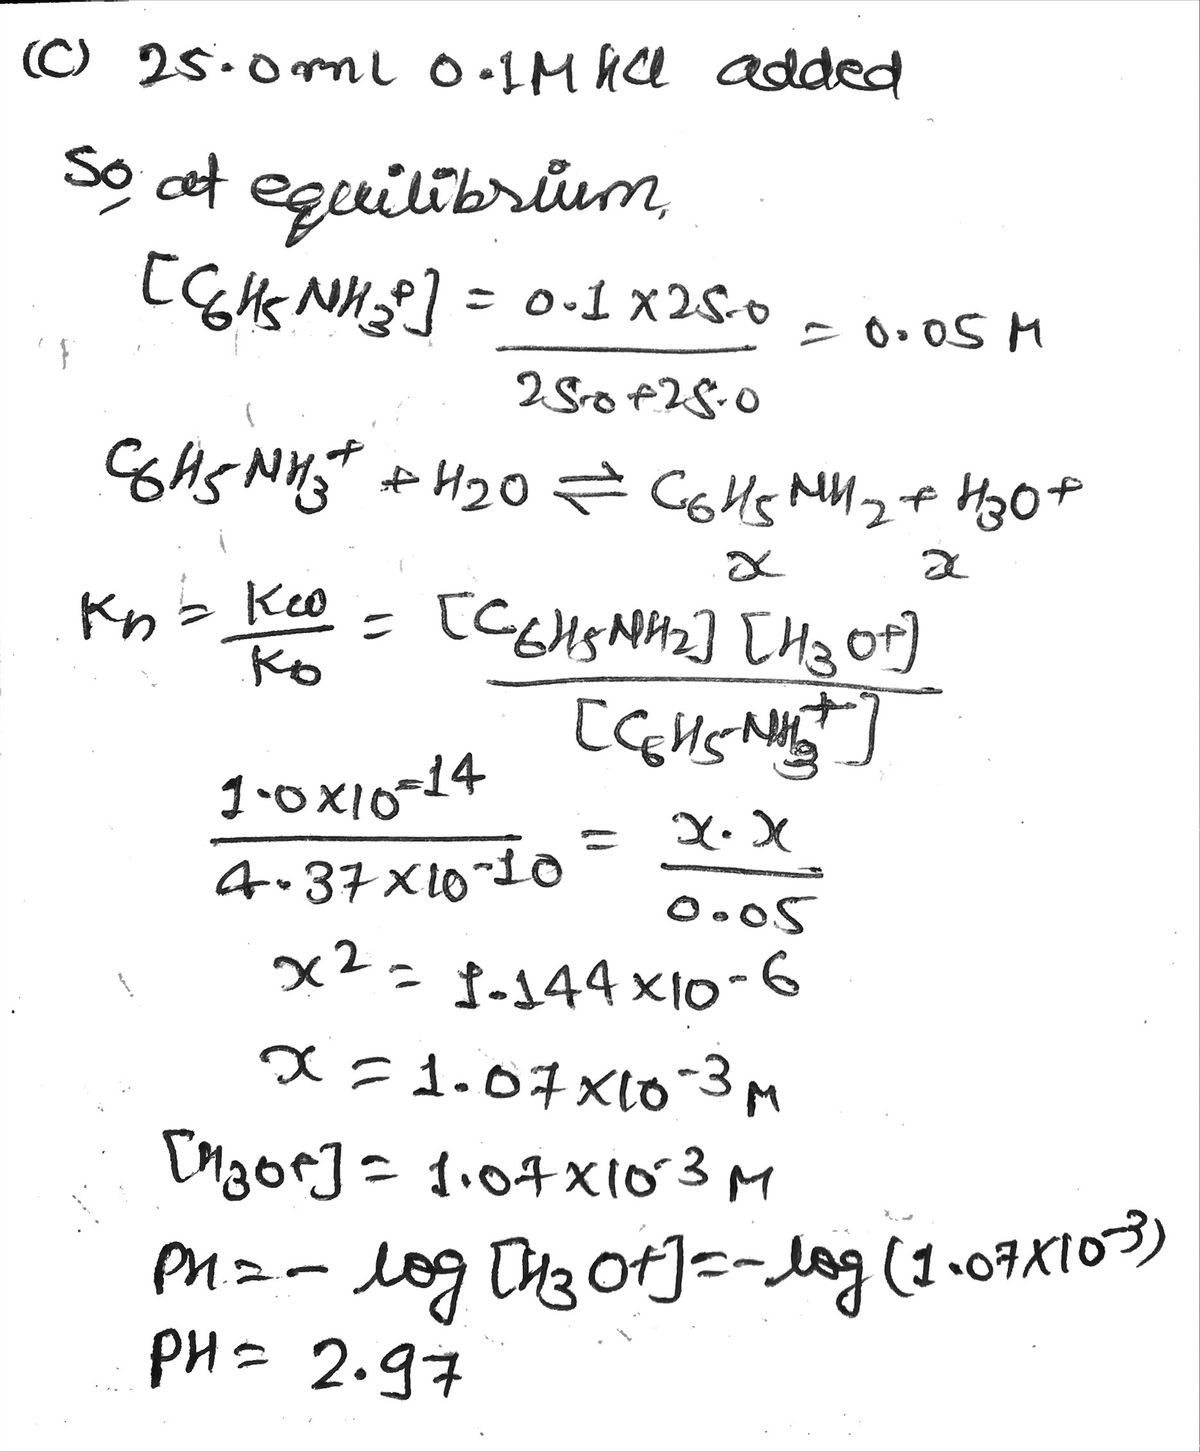 (C) 25.0 mL 0.1M HCl added
So at equilibrium,
[C6H5NH3+] = 0.1 x 25.0 / 25.0 + 25.0 = 0.05 M
C6H5NH3+ + H2O ⇌ C6H5NH2 + H3O+
x x
Kh = Kw / Kb = [C6H5NH2] [H3O+] / [C6H5NH3+]
1.0 x 10-14 / 4.37 x 10-10 = x.x / 0.05
x2 = 1.144 x 10-6
x = 1.07 x 10-3 M
[H3O+] = 1.07 x 10-3 M
PH = - log [H3O+] = - log (1.07 x 10-3)
PH = 2.97